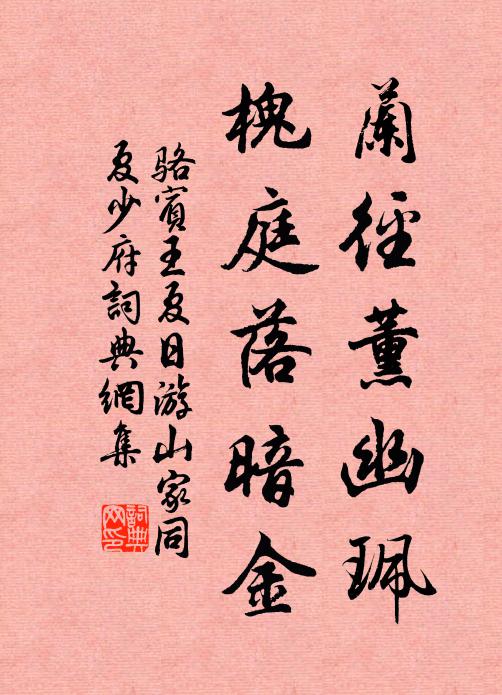 蘭徑薰幽珮
槐庭落暗金
駱賓王夏日游山家同
夏少府詞典網集
詞典
网印